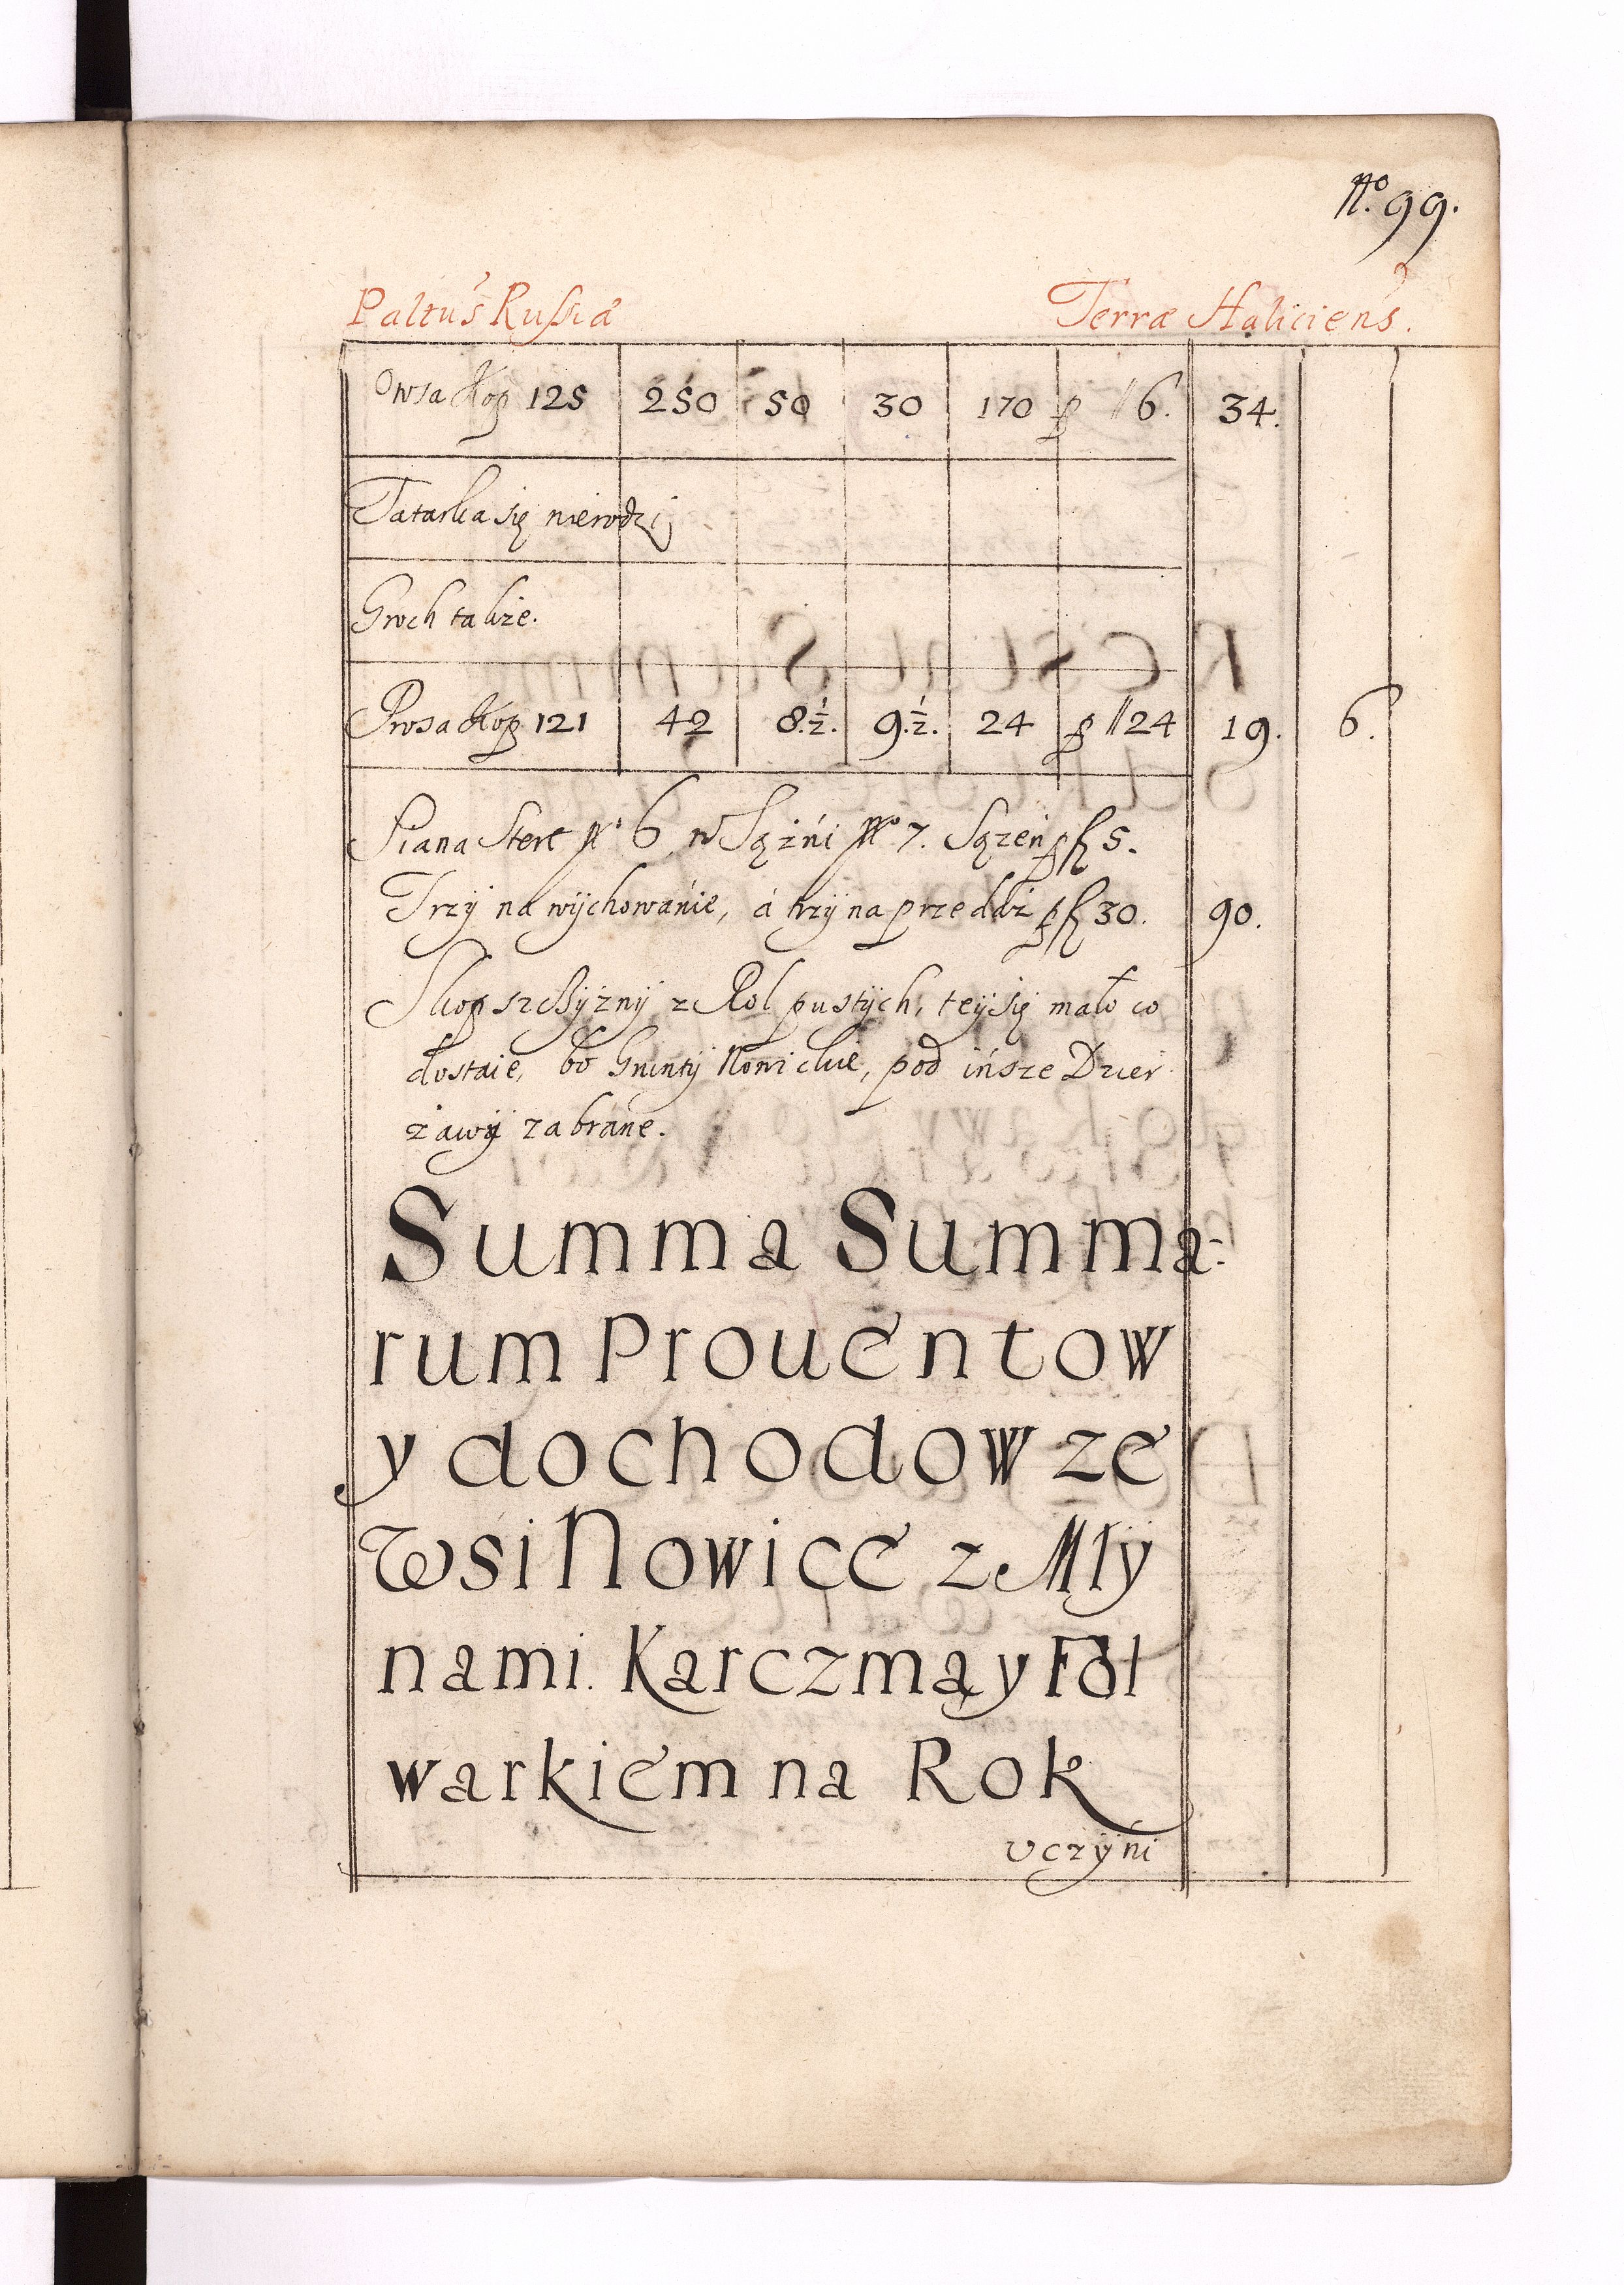 No. 99.
Paltus Russiæ Terræ Haliciens.
Owsa kop 125 250 50 30 170 p 16. 34.
Tatarka się nierodzi
Groch także.
Prosa kop 121 42 8.½. 9.½. 24 p 24 19. 6.
Siana Stert No 6 w Sążni No 7. Sążeń p fl 5.
Trzÿ na wÿchowánie, á trzÿ na przedáż p fl 30. 90.
Skopszczÿznÿ z Rol pustÿch, teÿ się mało co
dostaie, bo Gruntÿ Nowickie, pod insze Dzier
żawÿ zabrane.
Summa Summa-
rum Prouentow
y dochodow ze
Wsi Nowice z Mły
nami. Karczmą y Fol
warkiem na Rok
vczÿni